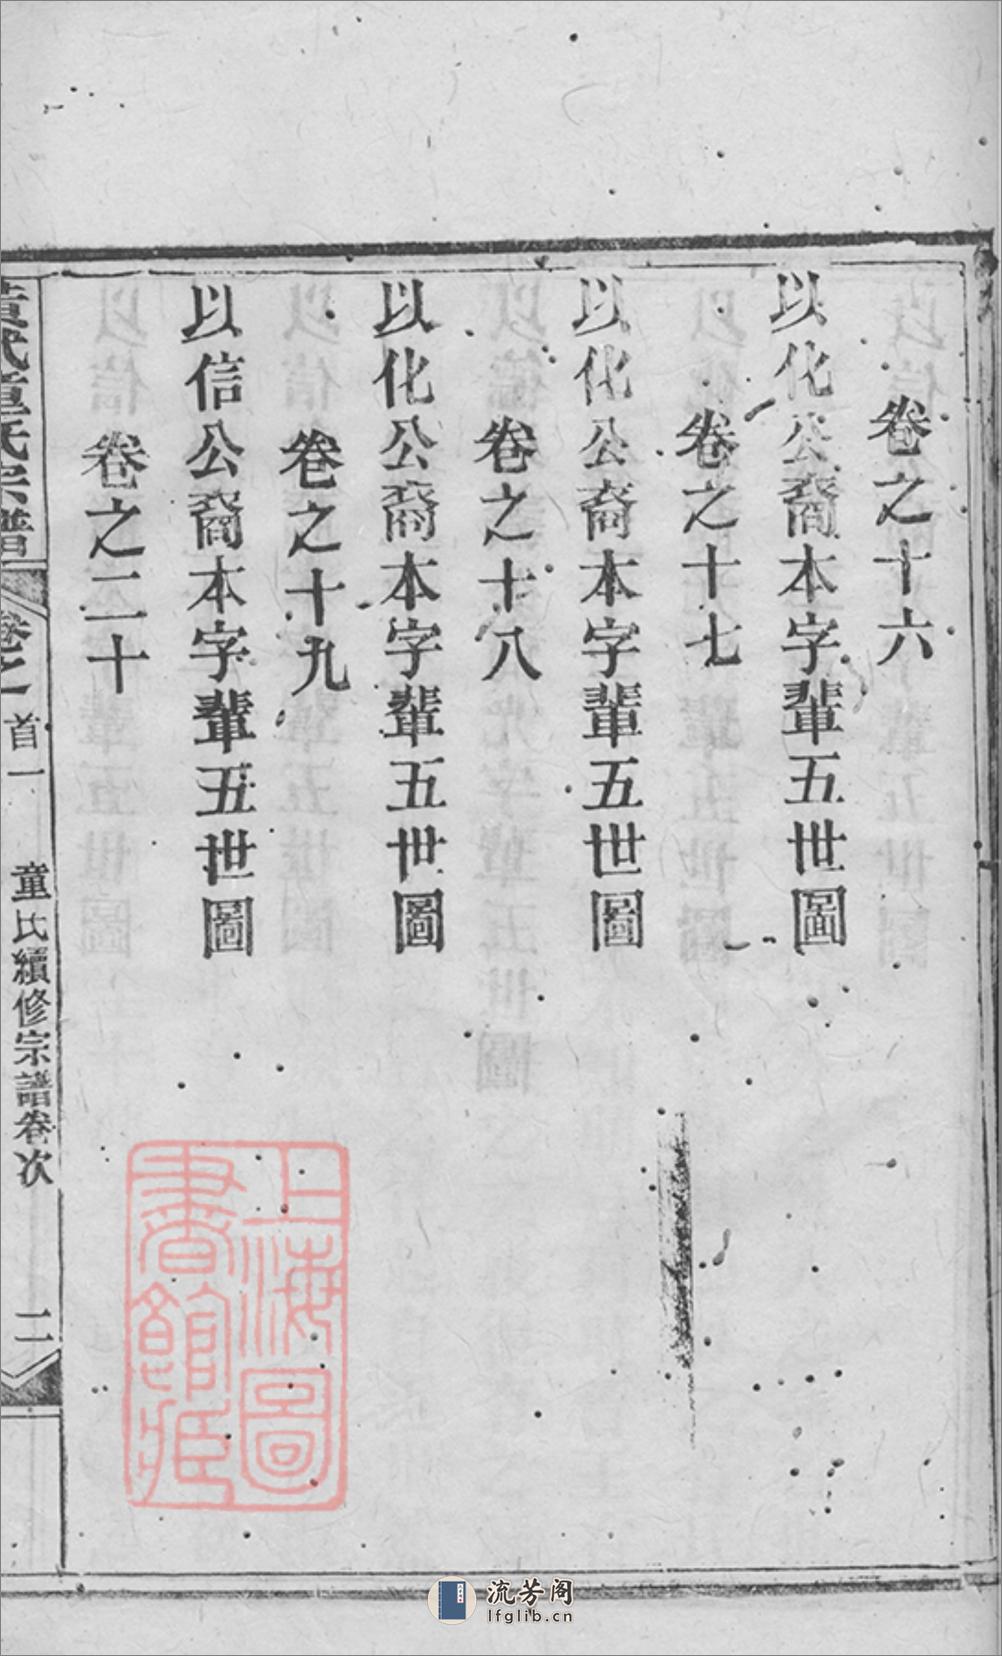 卷之十六
以化公裔本字輩五世圖
卷之十七
以化公裔本字輩五世圖
卷之十八
以化公裔本字輩五世圖
卷之十九
以信公裔本字輩五世圖
卷之二十
童氏宗譜
卷之首一
童氏續修宗譜卷次
二
上海圖
書館藏
流芳阁
lfglib.cn